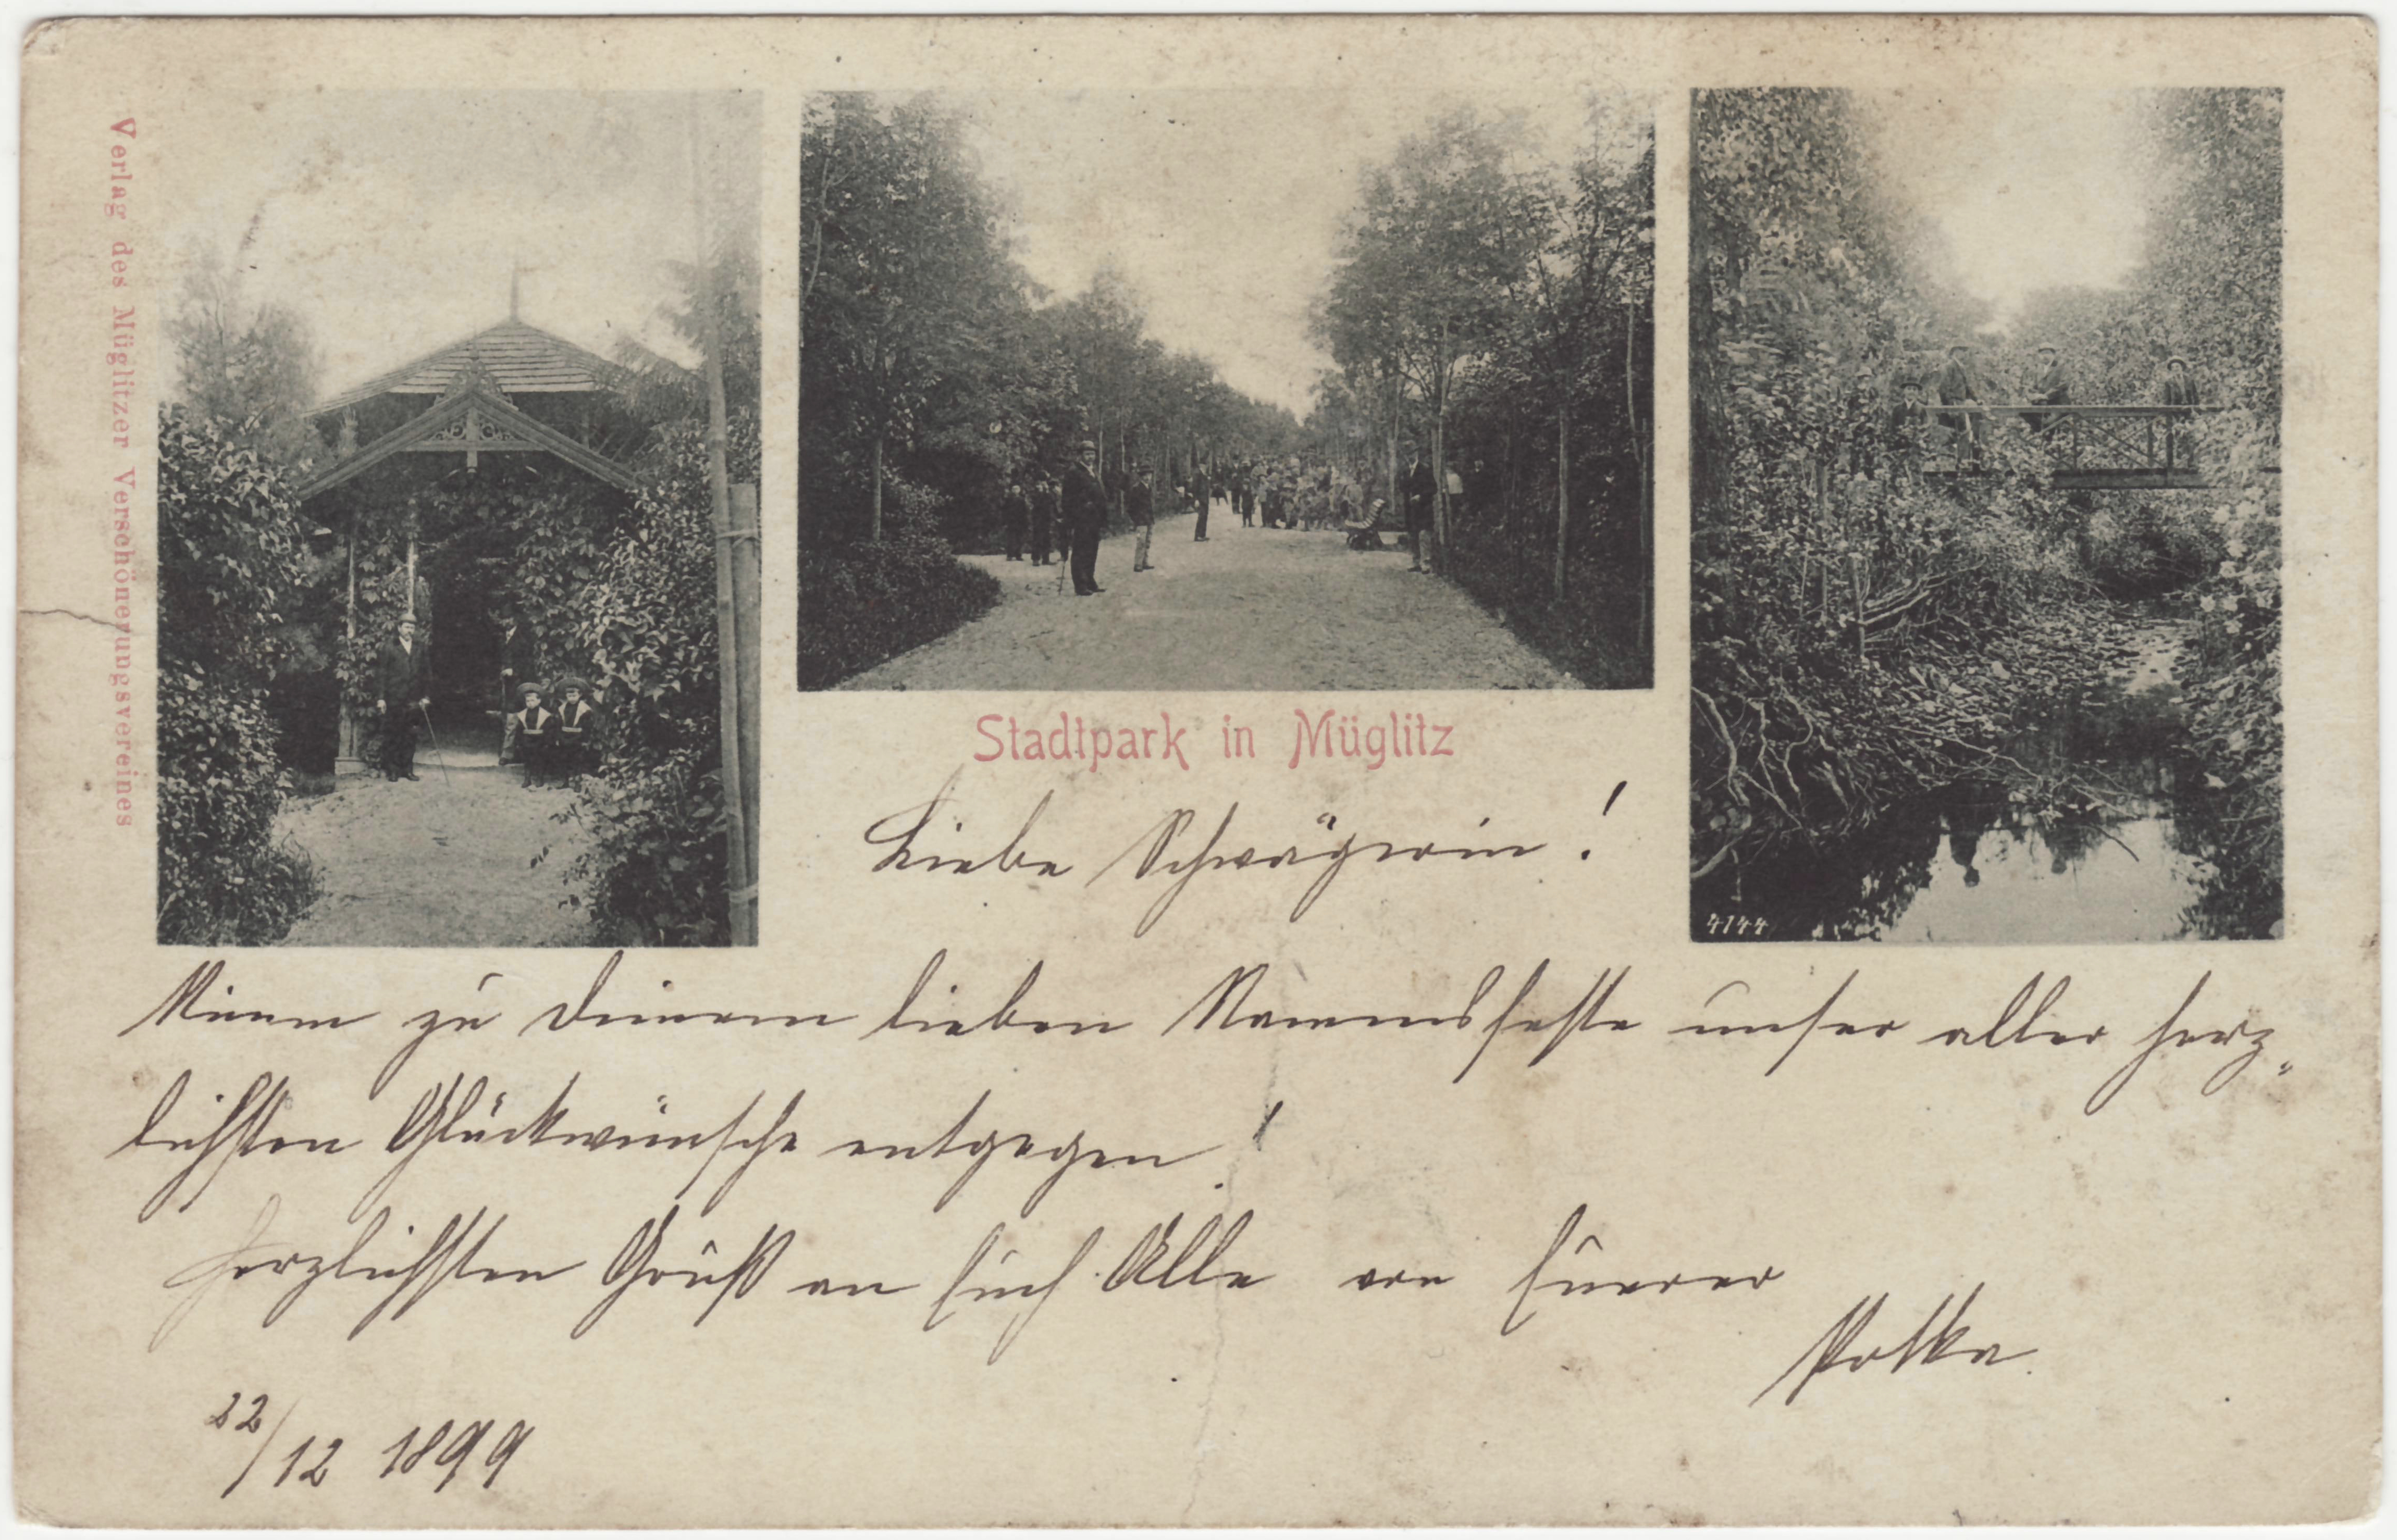 Verlag des Müglitzer Verschönerungsvereines
Stadtpark in Müglitz
4144
Liebe Schwägerin!
Nimm zu Deinem lieben Namensfeste unser aller herz-
lichsten Glückwünsche entgegen!
Herzlichsten Gruß an Euch Alle von Euerer
22/12 1899